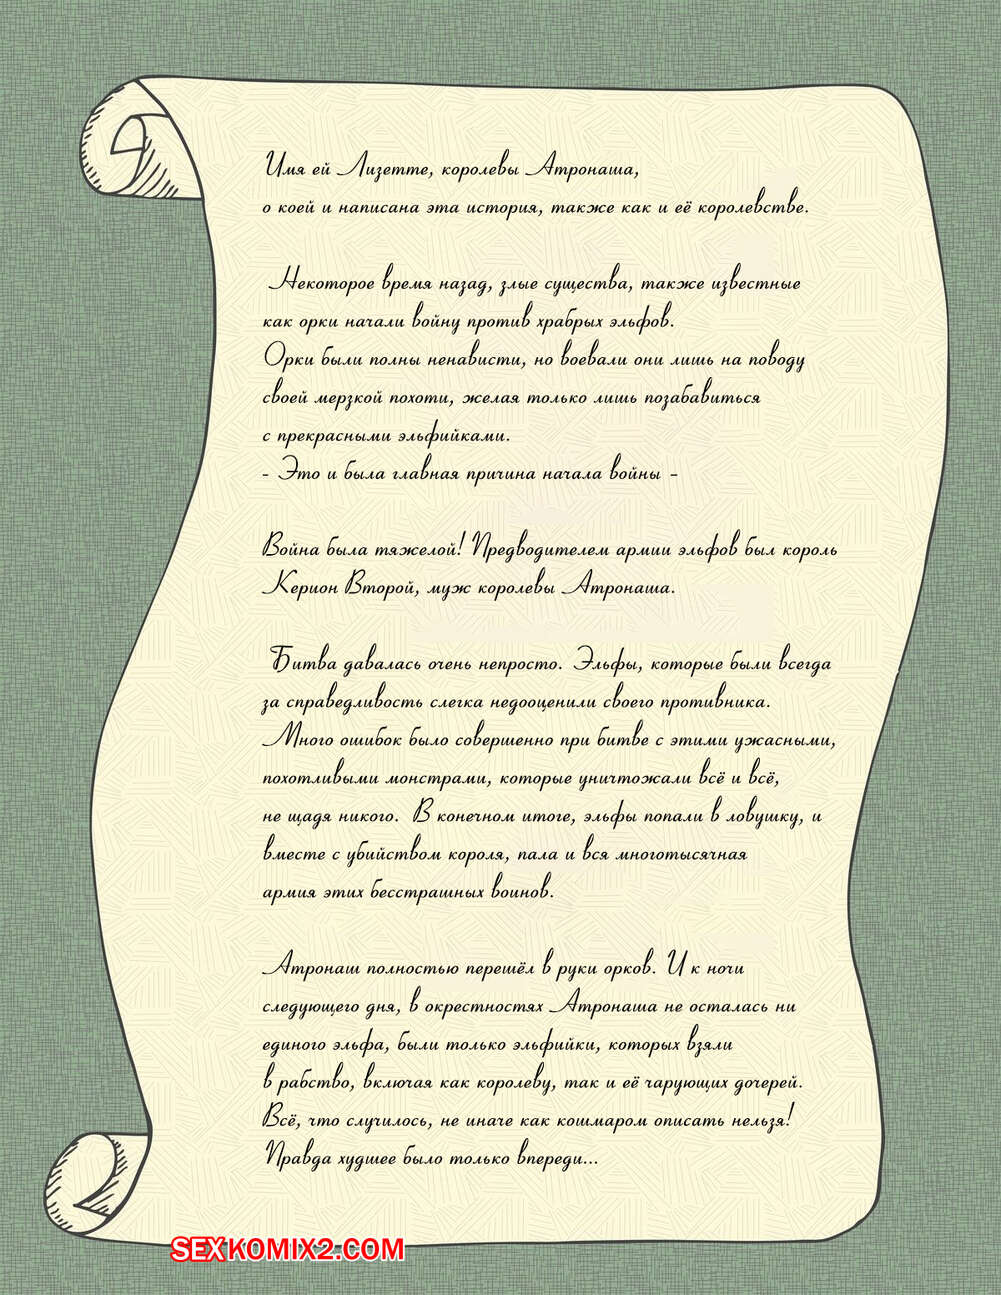 Имя ей Лизетте, королевы Атронаша,
о коей и написана эта история, также как и её королевстве.
Некоторое время назад, злые существа, также известные
как орки начали войну против храбрых эльфов.
Орки были полны ненависти, но воевали они лишь на поводу
своей мерзкой похоти, желая только лишь позабавиться
с прекрасными эльфийками.
- Это и была главная причина начала войны -
Война была тяжелой! Предводителем армии эльфов был король
Керион Второй, муж королевы Атронаша.
Битва давалась очень непросто. Эльфы, которые были всегда
за справедливость слегка недооценили своего противника.
Много ошибок было совершенно при битве с этими ужасными,
похотливыми монстрами, которые уничтожали всё и всё,
не щадя никого. В конечном итоге, эльфы попали в ловушку, и
вместе с убийством короля, пала и вся многотысячная
армия этих бесстрашных воинов.
Атронаш полностью перешёл в руки орков. И к ночи
следующего дня, в окрестностях Атронаша не осталась ни
единого эльфа, были только эльфийки, которых взяли
в рабство, включая как королеву, так и её чарующих дочерей.
Всё, что случилось, не иначе как кошмаром описать нельзя!
Правда худшее было только впереди...
SEXKOMIX2.COM